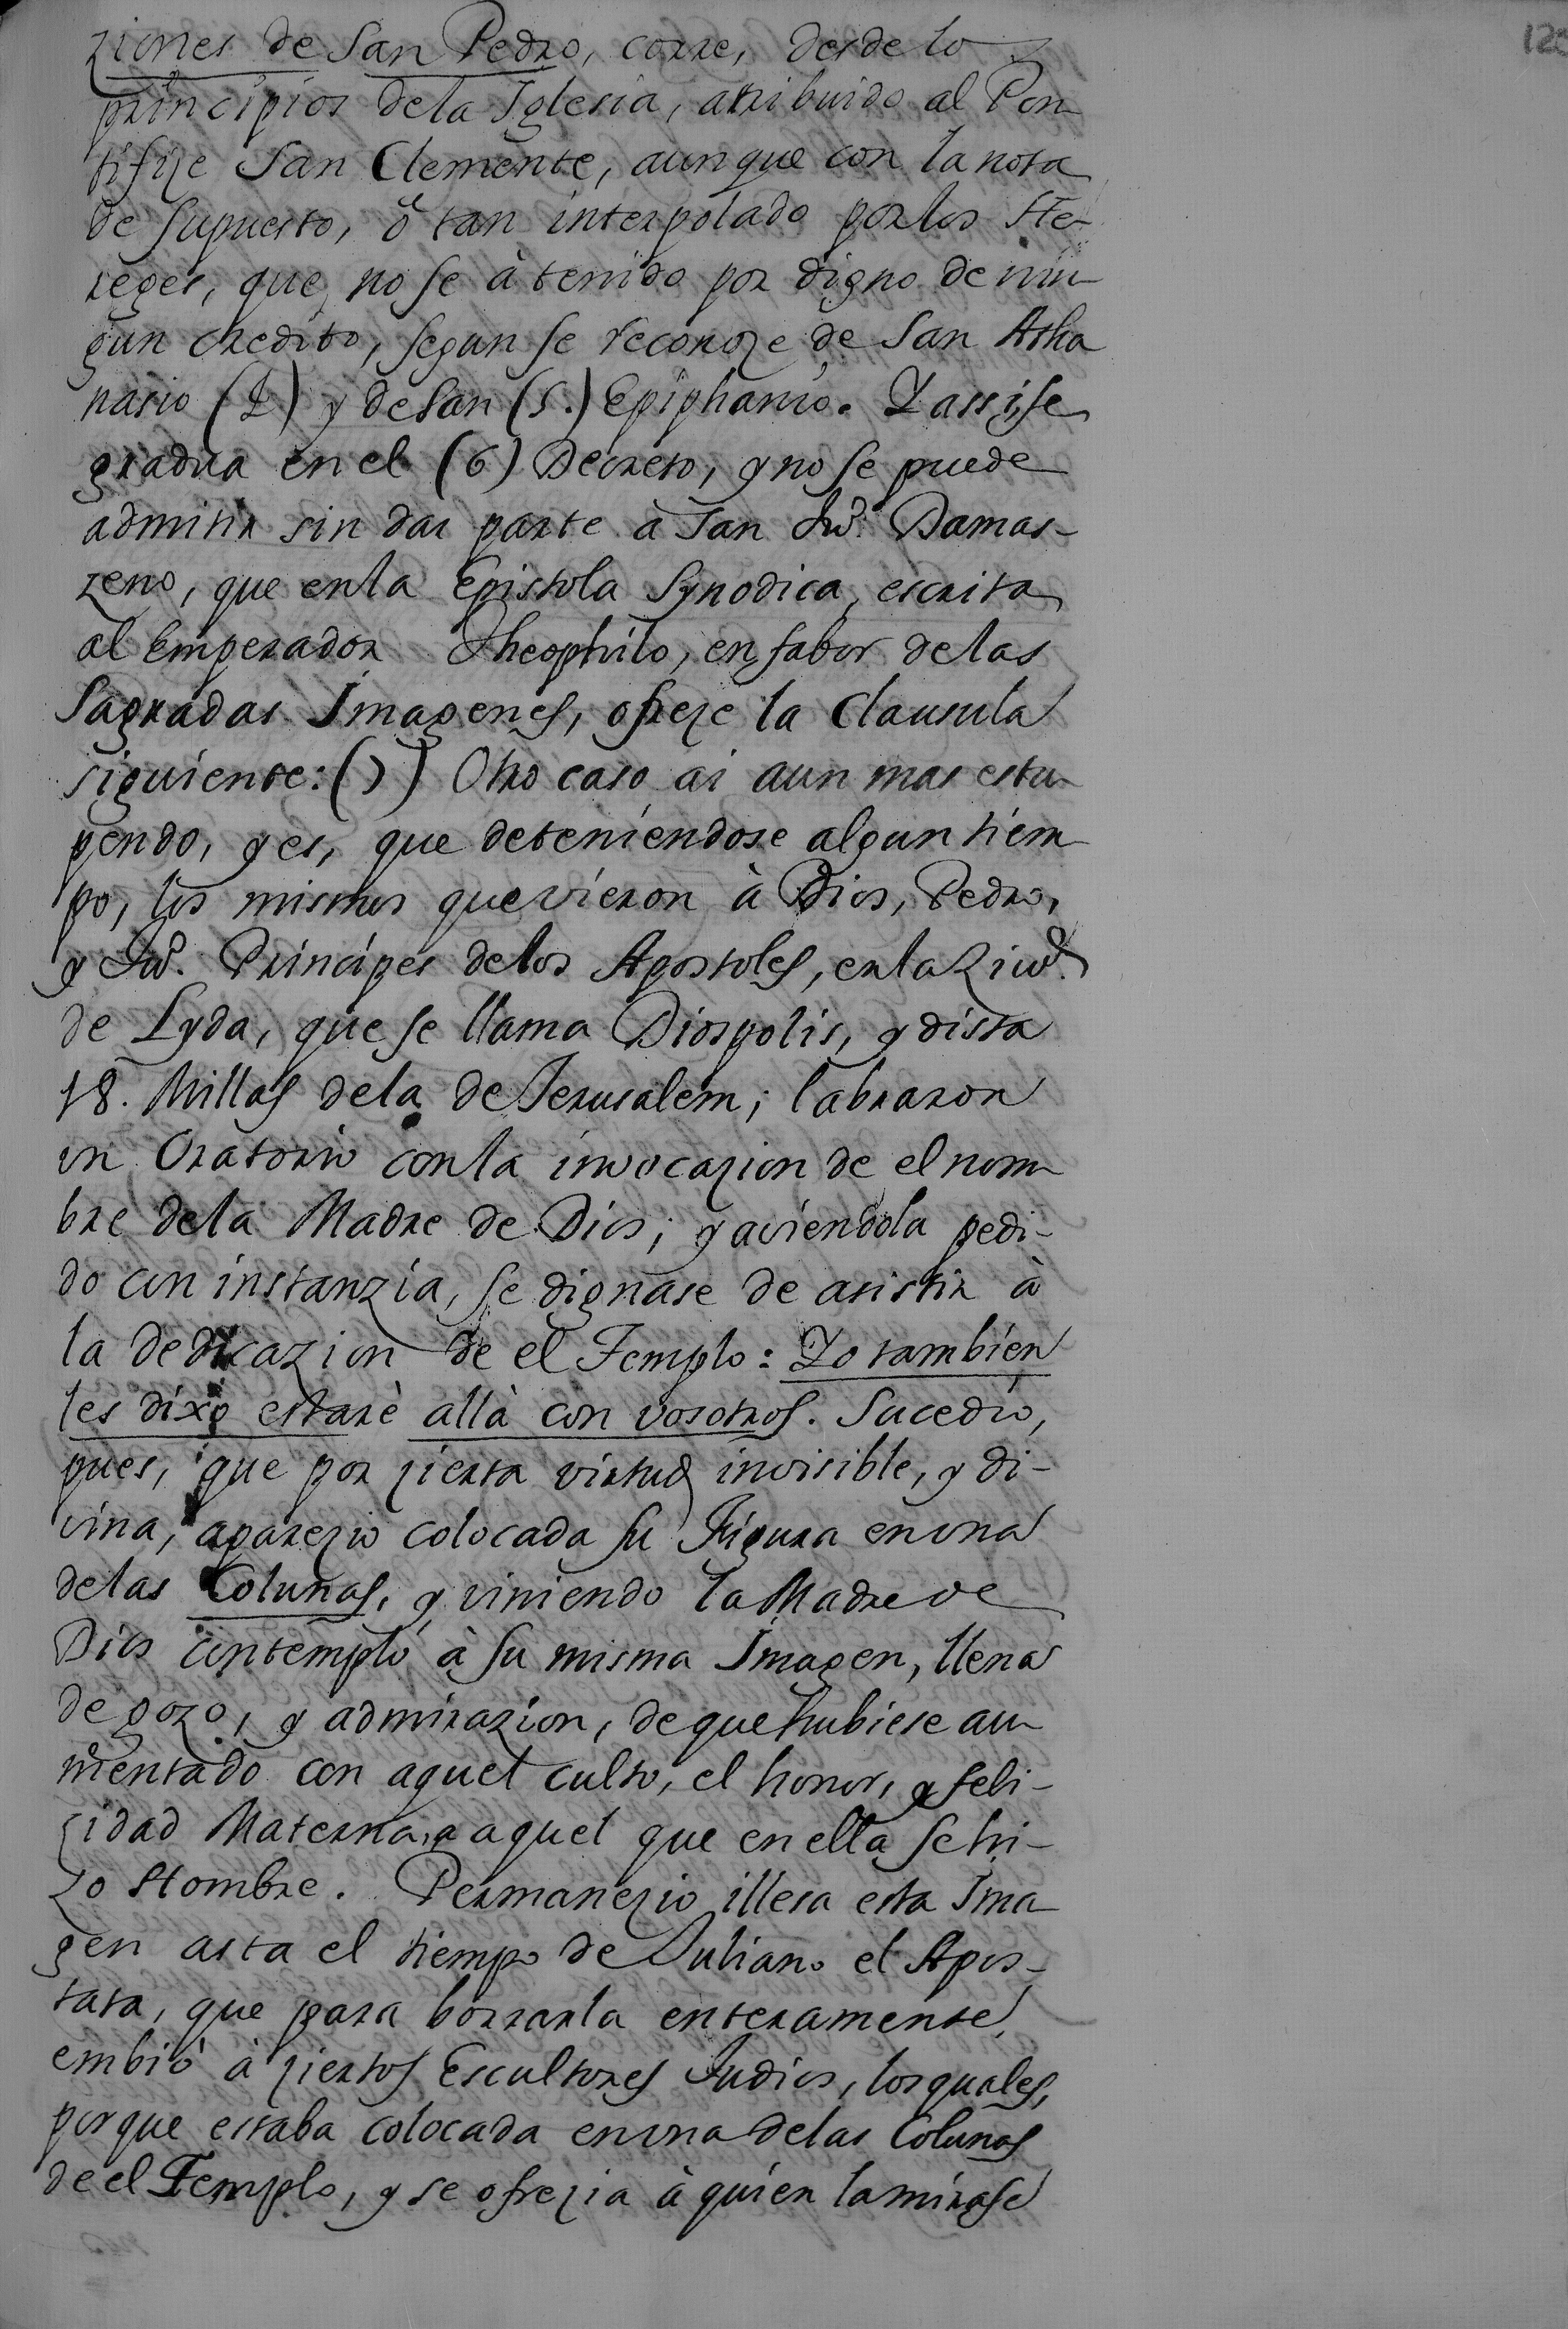 ziones de San Pedro, corre, desde lo
principios dela Iglesia, atribuido al Pon-
tifize San Clemente, aunque con la nota
de supuesto, ô tan interpolado por los He-
reges, que no se à tenido por digno de nin-
gun credito, segun se reconoze de San Atha
nasio (4) y de San (5.) Epiphanio. Y assi, se
gradua en el (6) Decreto, y no se puede
admitir sin dar parte a San Ju.º Damas-
zeno, que en la Epistola Synodica, escrita
al Emperador Theophilo, en fabor de las
Sagradas Imagenes, ofreze la Clausula
siguiente: (7) Otro caso ai aun mas estu-
pendo, y es, que deteniendose algun tiem-
po, los mismos que vieron à Dios, Pedro,
y Ju.º Principes delos Apostoles, en la Ziud.
de Lyda, que se llama Diospolis, y dista
18. Millas dela de Jerusalem; labraron
un Oratorio con la invocazion de el nom-
bre dela Madre de Dios; y aviendola pedi-
do con instanzia, se dignase de asistir à
la dedicazion de el Templo: Yo tambien
les dixo estarè allà con vosotros. Sucediò,
pues, que por zierta virtud invisible, y di-
vina, aparezio colocada su Figura en una
delas Colunas, y viniendo la Madre de
Dios contemplò à su misma Imagen, llena
de gozo, y admirazion, de que hubiese au-
mentado con aquel culto, el honor, y feli-
zidad Materna, a aquel que en ella se hi-
zo Hombre. Permanezio illesa esta Ima-
gen asta el tiempo de Juliano el Apos-
tata, que para borrarla enteramente,
embiò à ziertos Escultores Judios, los quales,
porque estaba colocada en una delas Colunas
de el Templo, y se ofrezia à quien la mirase